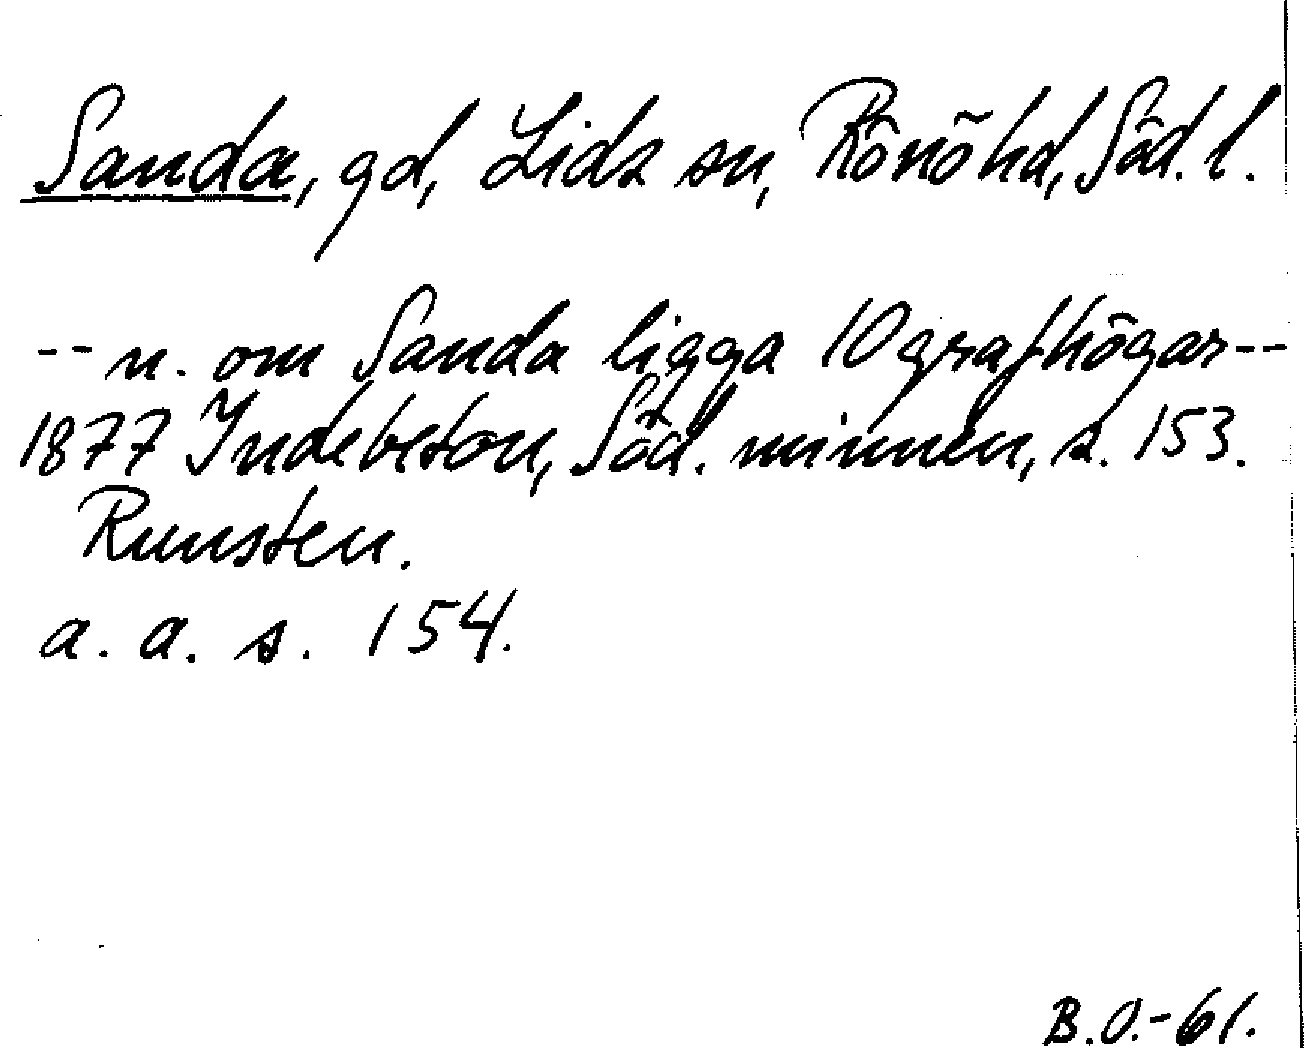 Sanda, gd, Lids sn, Rönö hd, Söd. l.
-- n. om Sanda ligga 10 grafhögar --
1877 Indebetou, Söd. minnen, s. 153.
Runsten.
a. a. s. 154.
B.O.-61.